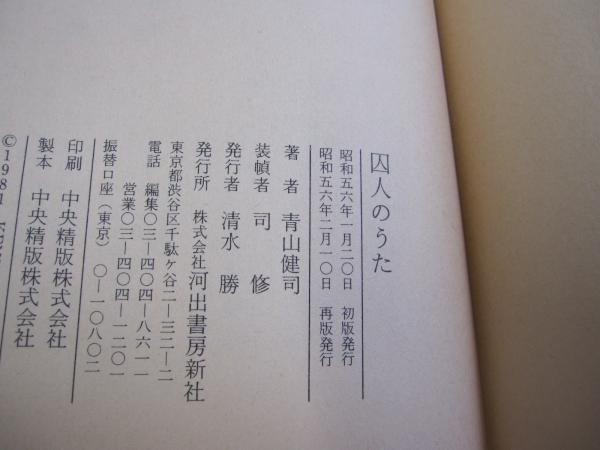 囚人のうた
昭和五六年一月二〇日　初版発行
昭和五六年二月一〇日　再版発行
著　者　青山健司
装幀者　司　修
発行者　清水　勝
発行所　株式会社河出書房新社
東京都渋谷区千駄ヶ谷二―三二―二
電話　編集〇三―四〇四―八六一一
営業〇三―四〇四―一二〇一
振替口座（東京）　〇―一〇八〇二
印刷　中央精版株式会社
製本　中央精版株式会社
©1981